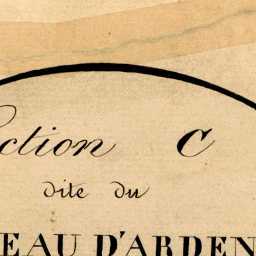 ction C
dite du
EAU D'ARDEN